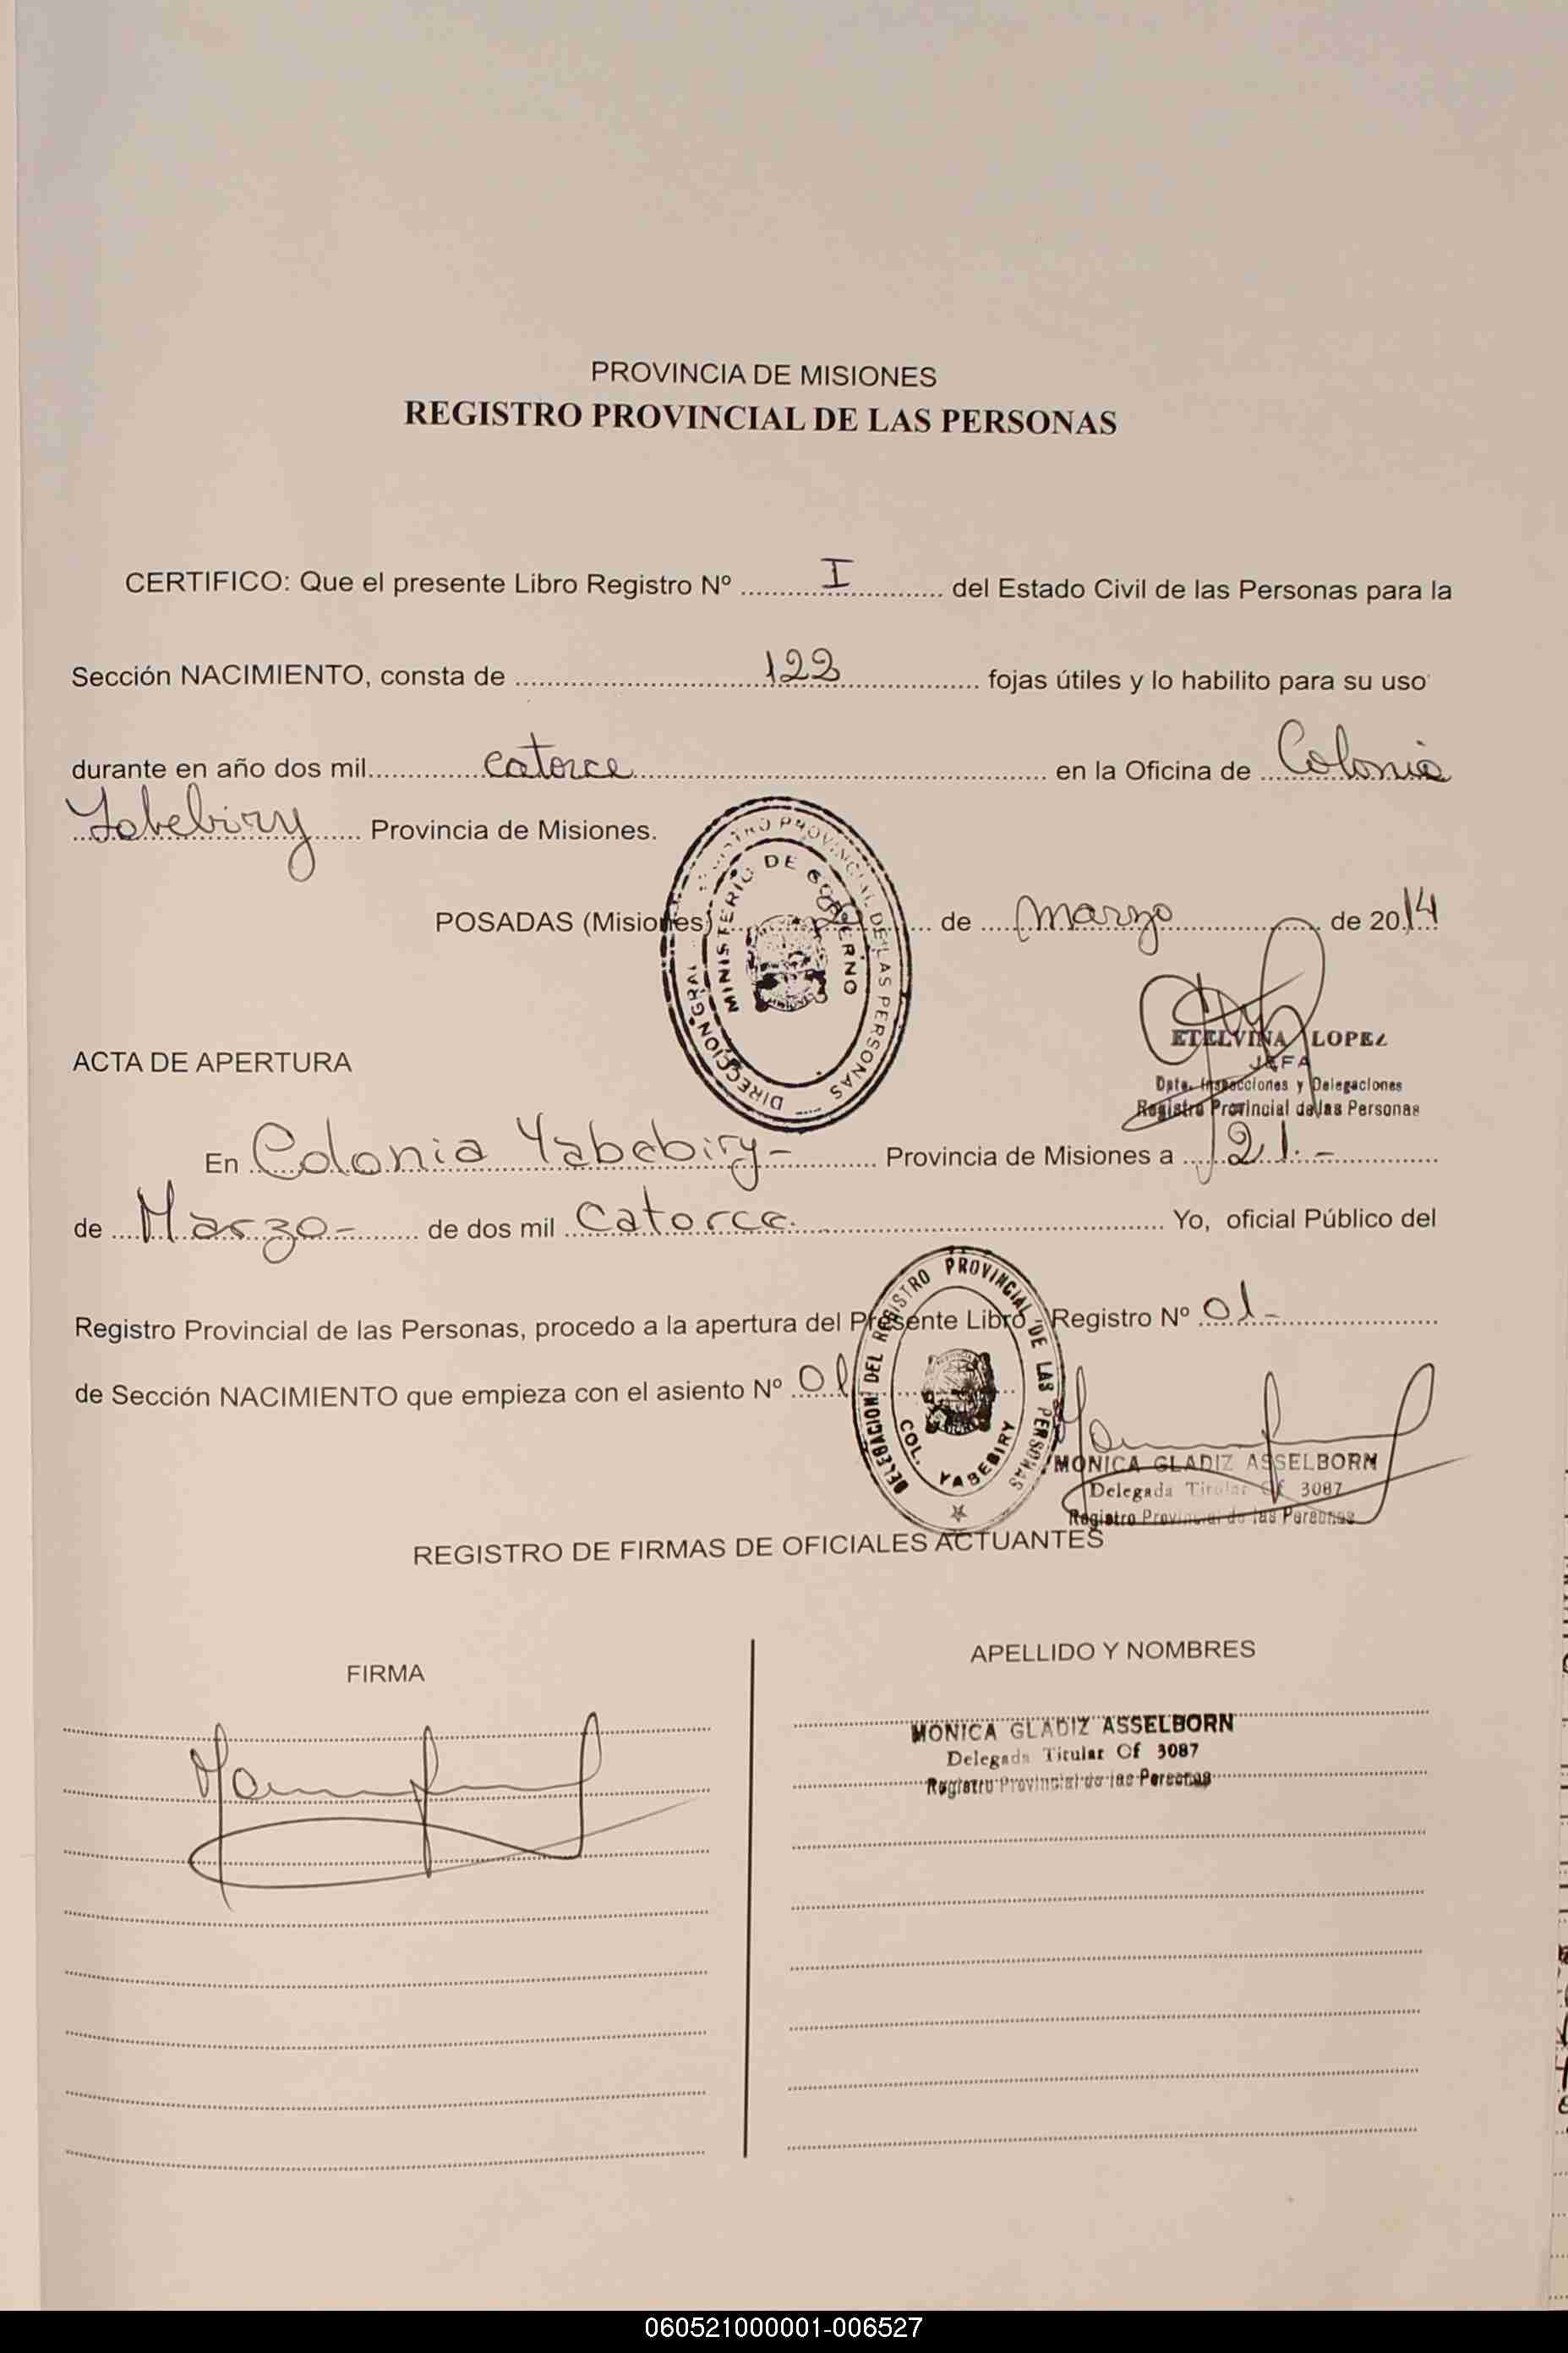 PROVINCIA DE MISIONES
REGISTRO PROVINCIAL DE LAS PERSONAS
CERTIFICO: Que el presente Libro Registro Nº I del Estado Civil de las Personas para la
Sección NACIMIENTO, consta de 122 fojas útiles y lo habilito para su uso
durante en año dos mil catorce en la Oficina de Colonia
Yabebiry Provincia de Misiones.
DIRECCION GRAL REGISTRO PROVINCIAL DE LAS PERSONAS
MINISTERIO DE GOBIERNO
POSADAS (Misiones) de marzo de 2014
ETELVINA LOPEZ
JEFA
Dpto. Inspecciones y Delegaciones
Registro Provincial de las Personas
ACTA DE APERTURA
En Colonia Yabebiry- Provincia de Misiones a 21.-
de Marzo- de dos mil Catorce. Yo, oficial Público del
Registro Provincial de las Personas, procedo a la apertura del Presente Libro Registro Nº 01-
de Sección NACIMIENTO que empieza con el asiento Nº 01
DELEGACION DEL REGISTRO PROVINCIAL DE LAS PERSONAS
COL. YABEBIRY
MONICA GLADIZ ASSELBORN
Delegada Titular Cf 3087
Registro Provincial de las Personas
REGISTRO DE FIRMAS DE OFICIALES ACTUANTES
FIRMA
APELLIDO Y NOMBRES
MONICA GLADIZ ASSELBORN
Delegada Titular Cf 3087
Registro Provincial de las Personas
060521000001-006527